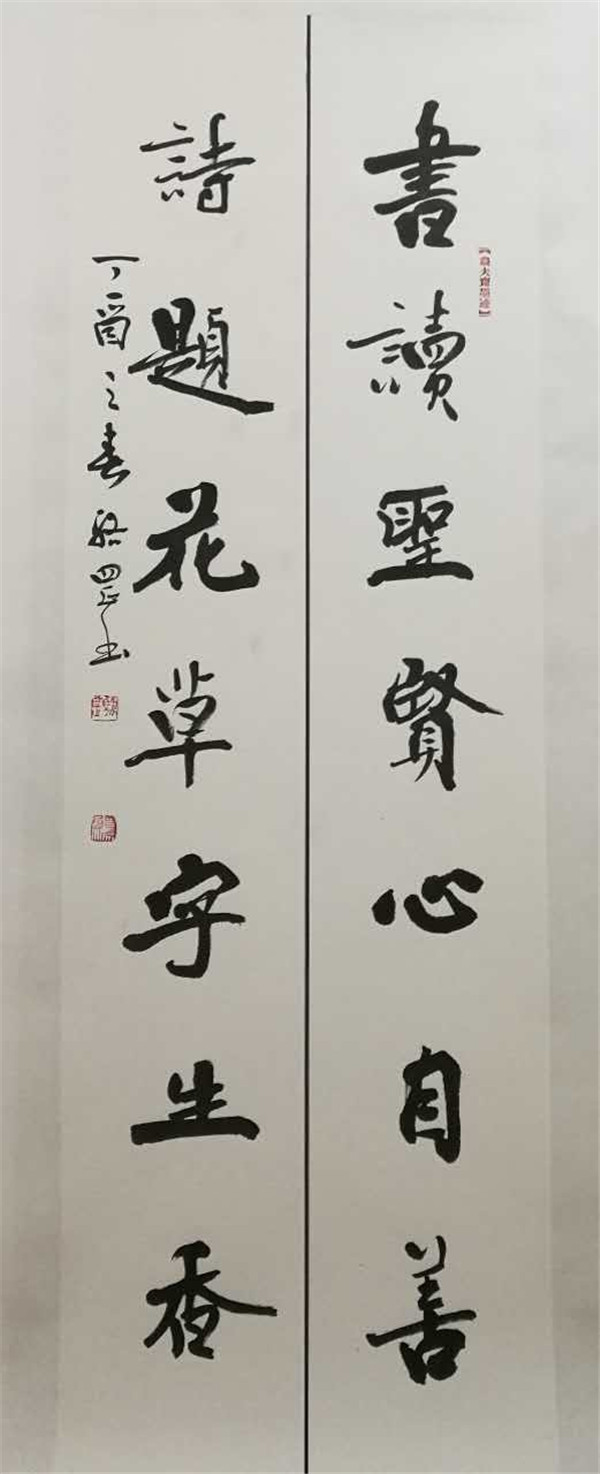 書讀聖賢心自善
詩題花草字生香
丁酉之春